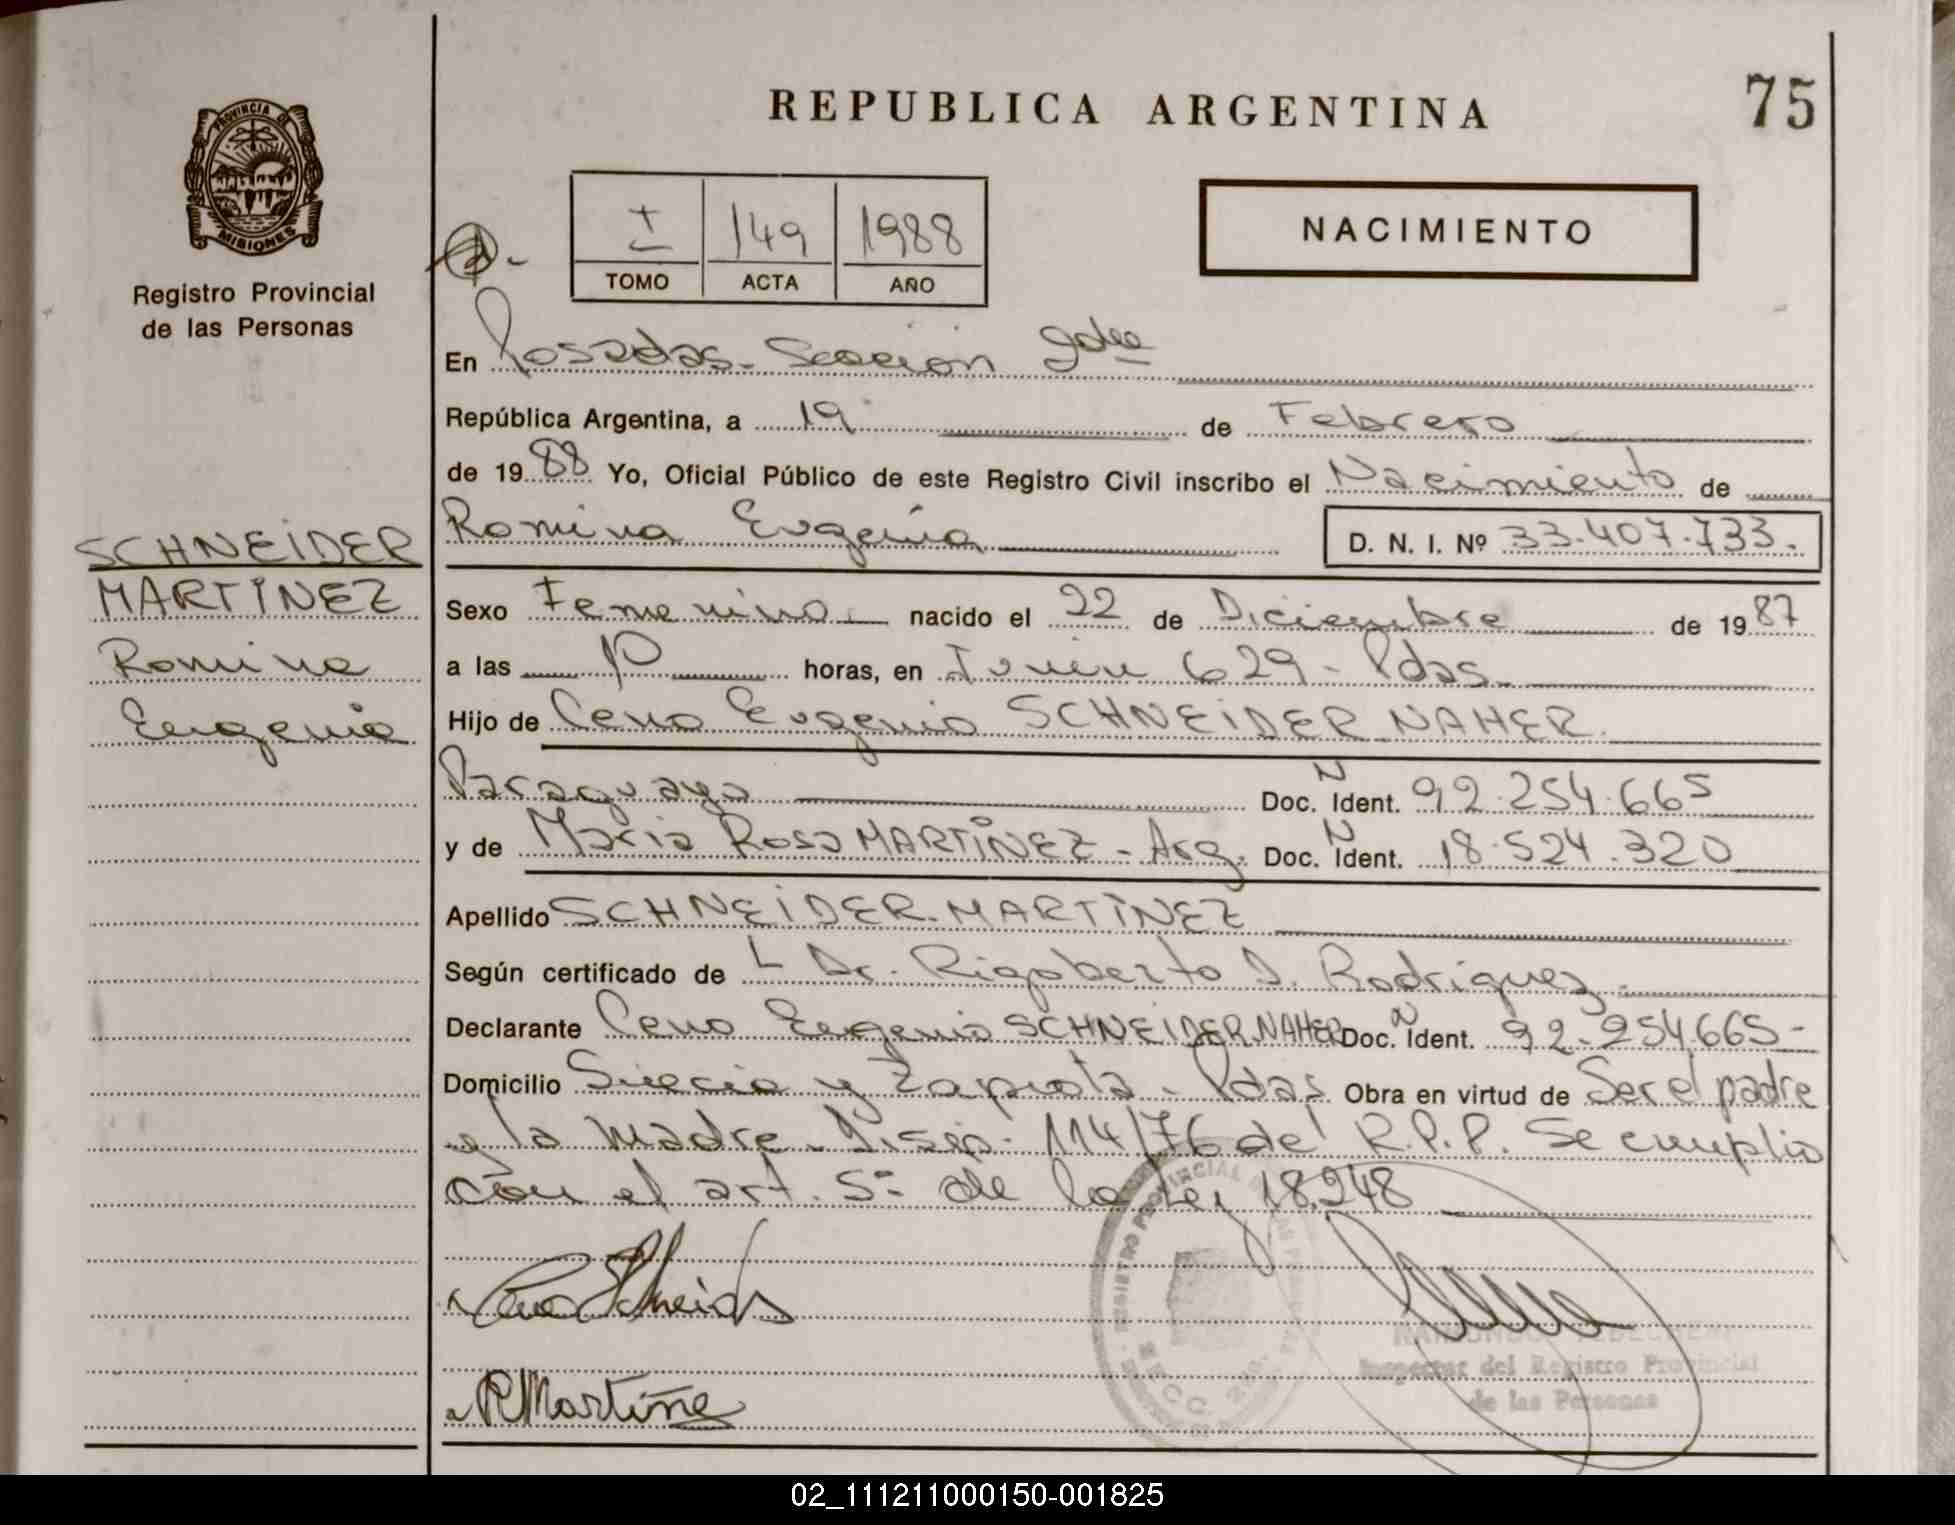 REPUBLICA ARGENTINA
75
PROVINCIA DE
MISIONES
Registro Provincial
de las Personas
149 1988
TOMO ACTA AÑO
NACIMIENTO
En Posadas - Seccion 2da
República Argentina, a 19 de Febrero
de 1988 Yo, Oficial Público de este Registro Civil inscribo el Nacimiento de
Romina Eugenia D. N. I. Nº 33.407.733.
SCHNEIDER
MARTINEZ
Romina
Eugenia
Sexo Femenino nacido el 22 de Diciembre de 1987
a las horas, en Junin 629 - Pdas.
Hijo de Ceno Eugenio SCHNEIDER NAHER.
Paraguayo Doc. N Ident. 92.254.665
y de Maria Rosa MARTINEZ - Arg. Doc. N Ident. 18.524.320
Apellido SCHNEIDER MARTINEZ
Según certificado de L Dr. Rigoberto D. Rodriguez
Declarante Ceno Eugenio SCHNEIDER NAHER Doc. N Ident. 92.254.665-
Domicilio Suecia y Zapiola - Pdas Obra en virtud de Ser el padre
y la madre - Disp. 114/76 del R.P.P. Se cumplio
con el art. 5º de la Ley 18.248
Ceno Schneider
R Martinez
REGISTRO PROVINCIAL DE LAS PERSONAS
SECC. 2da.
Inspector del Registro Provincial
de las Personas
02_111211000150-001825